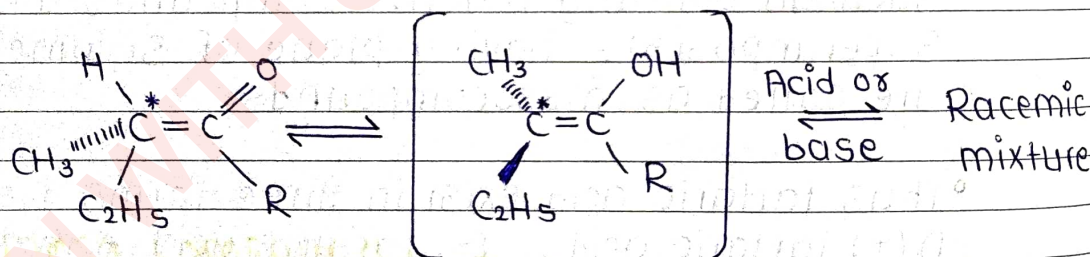 H
O
CH3
C*=C
C2H5
R
CH3
OH
C*=C
C2H5
R
Acid or
base
Racemic
mixture